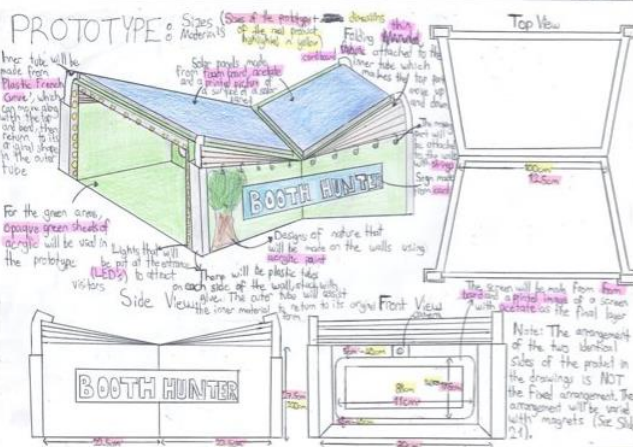 PROTOTYPE:
Sizes (Sizes of the prototype + dimensions
Materials of the real product
highlighted in yellow)
Inner tube will be
made from
'Plastic French
Curve', which
can move along
with the top
and bend, then
return to its
original shape
in the outer
tube
Solar panels made
from foam board, acetate
and a printed picture of
a surface of a solar
panel
Folding thin
cardboard
attached to the
inner tube which
makes the top part
move up
and down
Top View
100cm
12.5cm
will
be attached
with string
Sign made
from
BOOTH HUNTER
For the green areas,
opaque green sheets of
acrylic will be used in
the prototype
Lights that will
be put at the entrance
(LED's) to attract
visitors
Designs of nature that
will be made on the walls using
acrylic paint
There will be plastic tubes
on each side of the wall, stick with
glue. The outer tube will assist
the inner material to return to its original
form.
The screen will be made from foam
board and a printed image of a screen
with acetate as the final layer
Side View
BOOTH HUNTER
Front View
camera
11cm
Note: The arrangement
of the two identical
sides of the product in
the drawings is NOT
the fixed arrangement. The
arrangement will be varied
with magnets (See Slide
21).